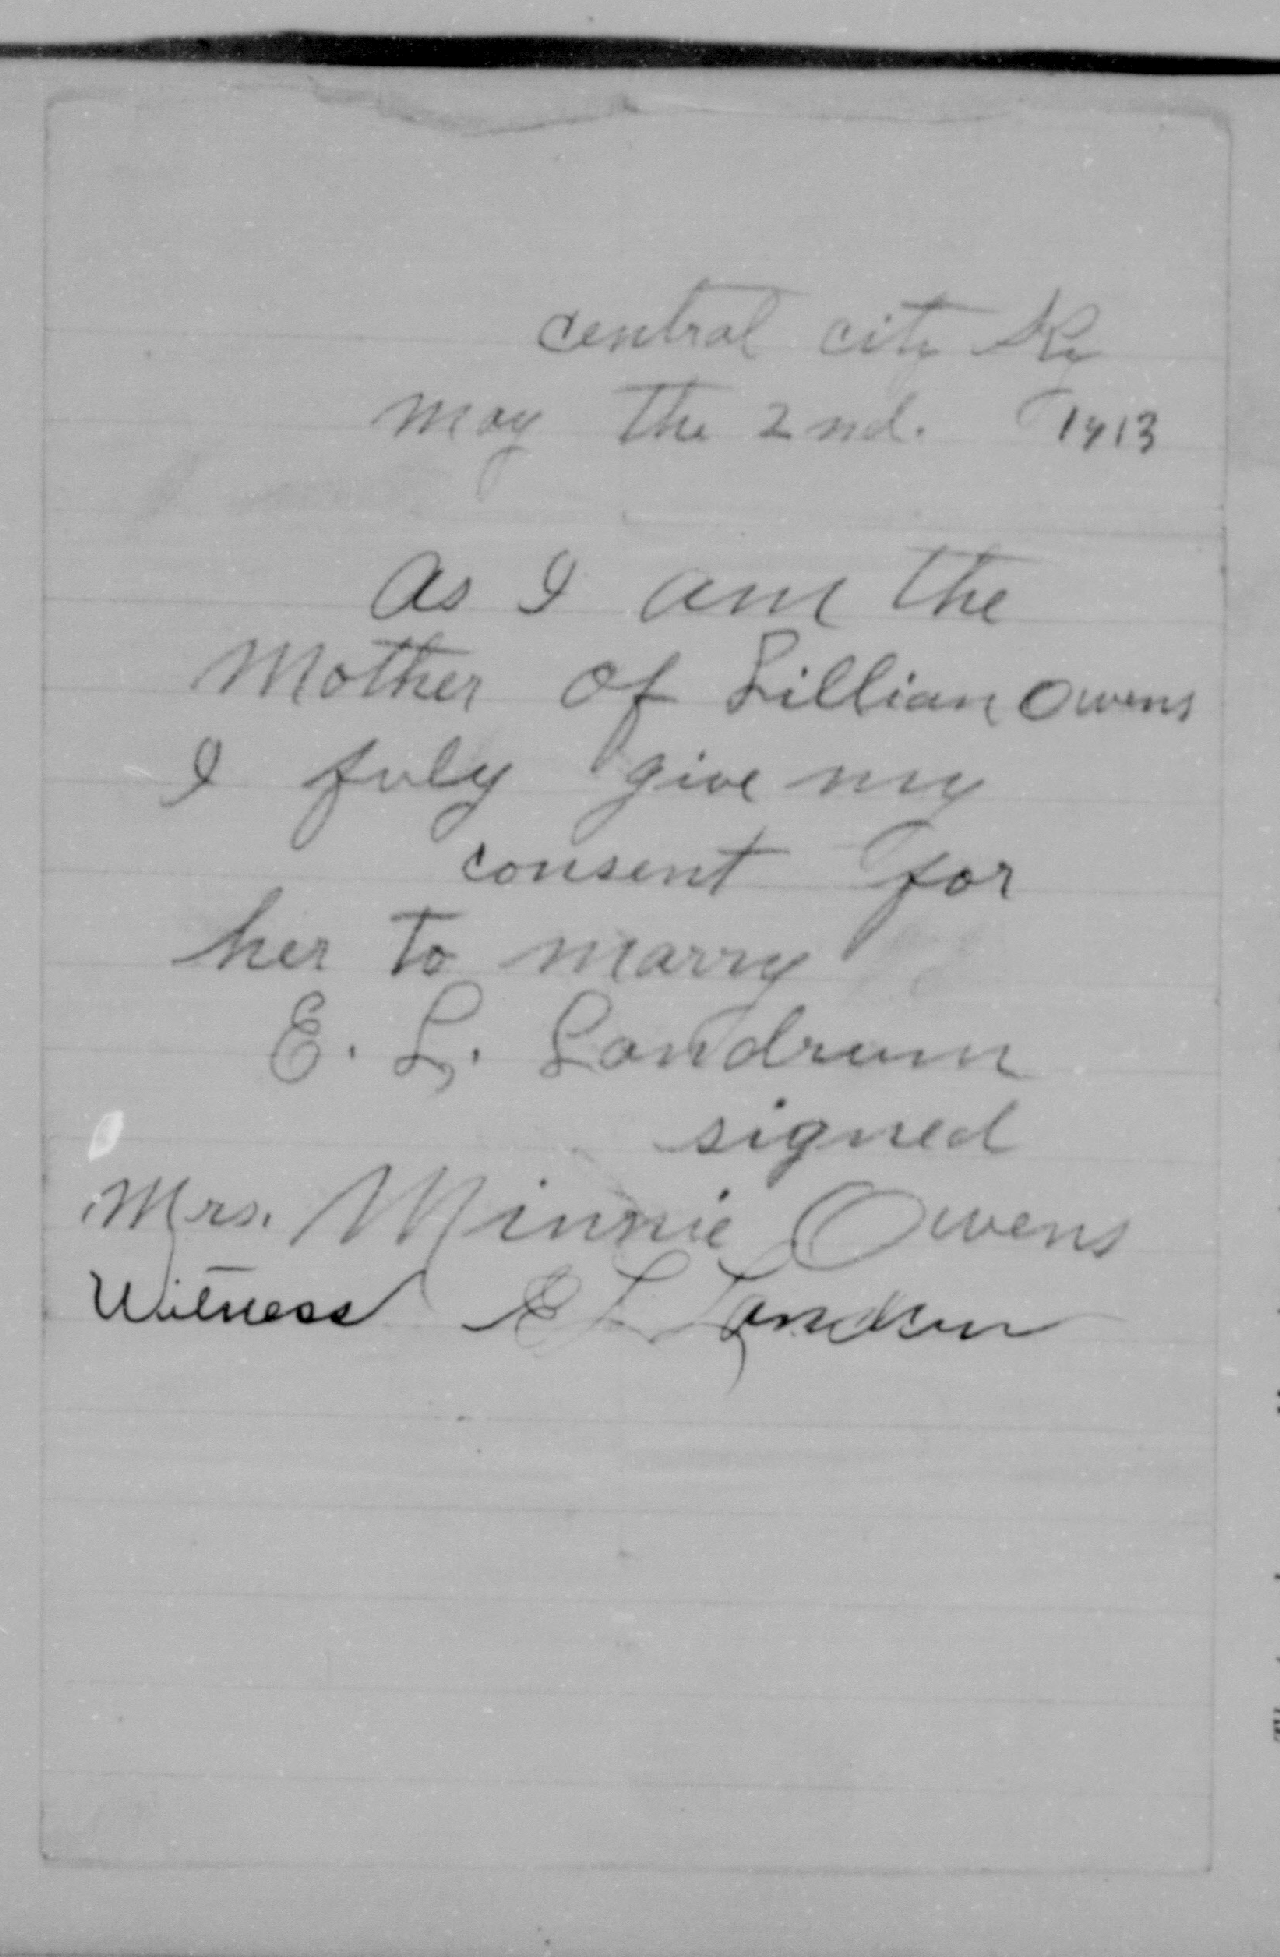 central city Ky
may the 2nd. 1913
As I am the
Mother of Lillian Owens
I fuly give my
consent for
her to marry
E. L. Landrum
signed
Mrs. Minnie Owens
Witness E L Landrum